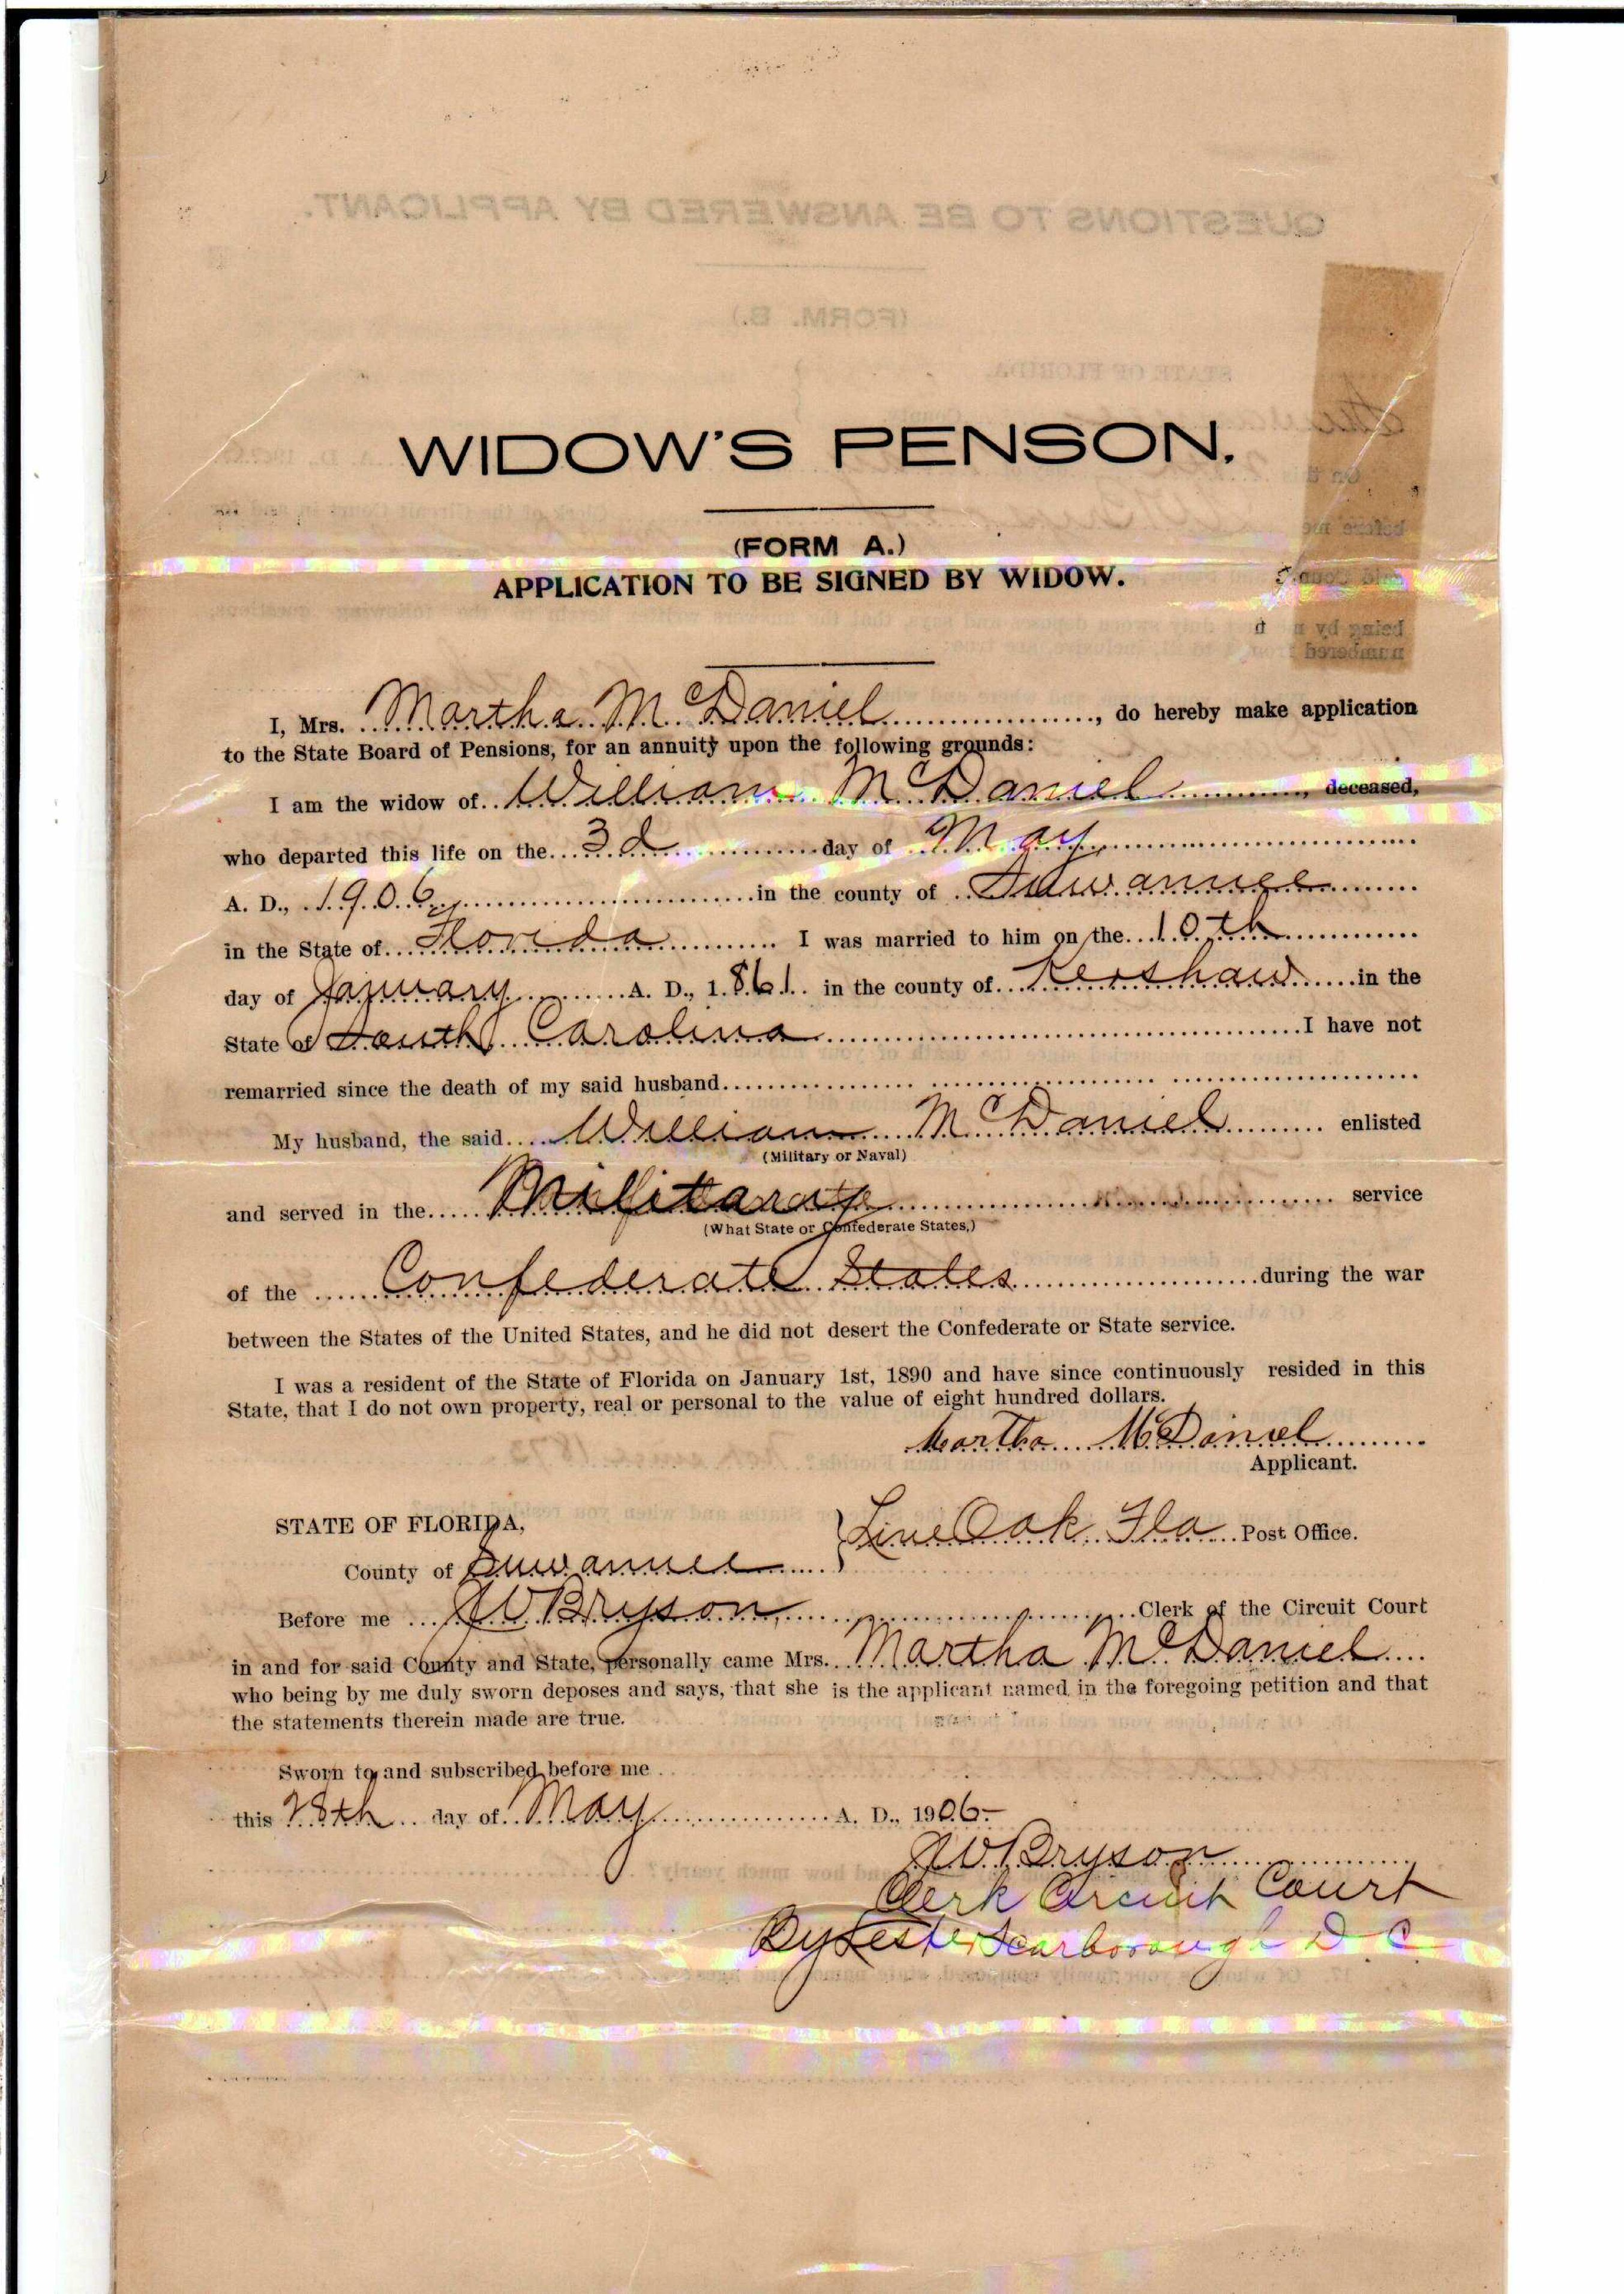 WIDOW'S PENSON.
(FORM A.)
APPLICATION TO BE SIGNED BY WIDOW.
I, Mrs. Martha McDaniel, do hereby make application
to the State Board of Pensions, for an annuity upon the following grounds:
I am the widow of William McDaniel, deceased,
who departed this life on the 3d day of May
A. D., 1906, in the county of Suwannee
in the State of Florida I was married to him on the 10th
day of January A. D., 1861 in the county of Kershaw in the
State of South Carolina I have not
remarried since the death of my said husband
My husband, the said William McDaniel enlisted
(Military or Naval)
and served in the Military service
(What State or Confederate States,)
of the Confederate States during the war
between the States of the United States, and he did not desert the Confederate or State service.
I was a resident of the State of Florida on January 1st, 1890 and have since continuously resided in this
State, that I do not own property, real or personal to the value of eight hundred dollars.
Martha McDaniel
Applicant.
STATE OF FLORIDA,
Live Oak Fla Post Office.
County of Suwannee
Before me J W Bryson, Clerk of the Circuit Court
in and for said County and State, personally came Mrs. Martha McDaniel
who being by me duly sworn deposes and says, that she is the applicant named in the foregoing petition and that
the statements therein made are true.
Sworn to and subscribed before me
this 28th day of May A. D., 1906-
J W Bryson
Clerk Circuit Court
By Lester Scarborough D C